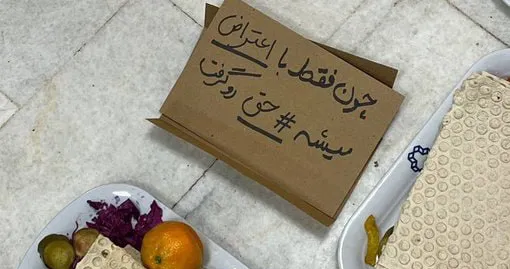 چون فقط با اعتراض
میشه #حق رو گرفت